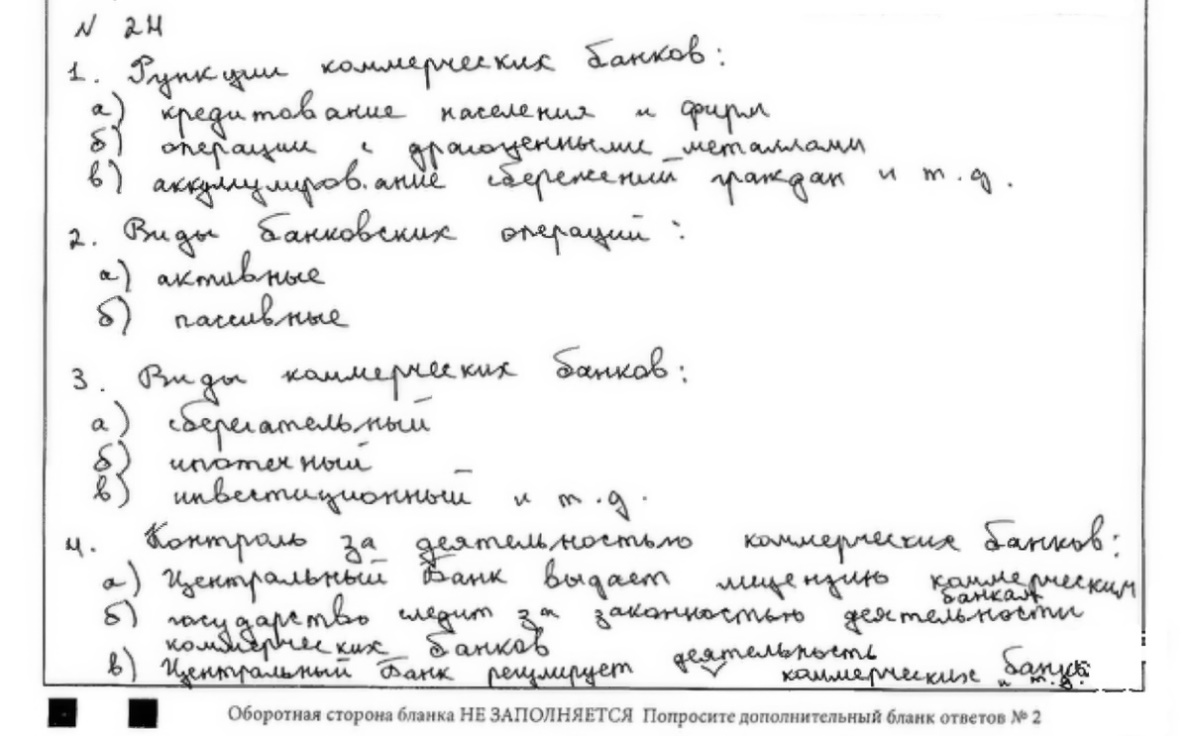 N 24
1. Функции коммерческих банков:
а) кредитование населения и фирм
б) операции с драгоценными металлами
в) аккумулирование сбережений граждан и т.д.
2. Виды банковских операций:
а) активные
б) пассивные
3. Виды коммерческих банков:
а) сберегательный
б) ипотечный
в) инвестиционный и т.д.
4. Контроль за деятельностью коммерческих банков:
а) Центральный Банк выдает лицензию коммерческим
банкам
б) государство следит за законностью деятельности
коммерческих банков
в) Центральный Банк регулирует деятельность коммерческих банков
и т.д.
Оборотная сторона бланка НЕ ЗАПОЛНЯЕТСЯ Попросите дополнительный бланк ответов № 2